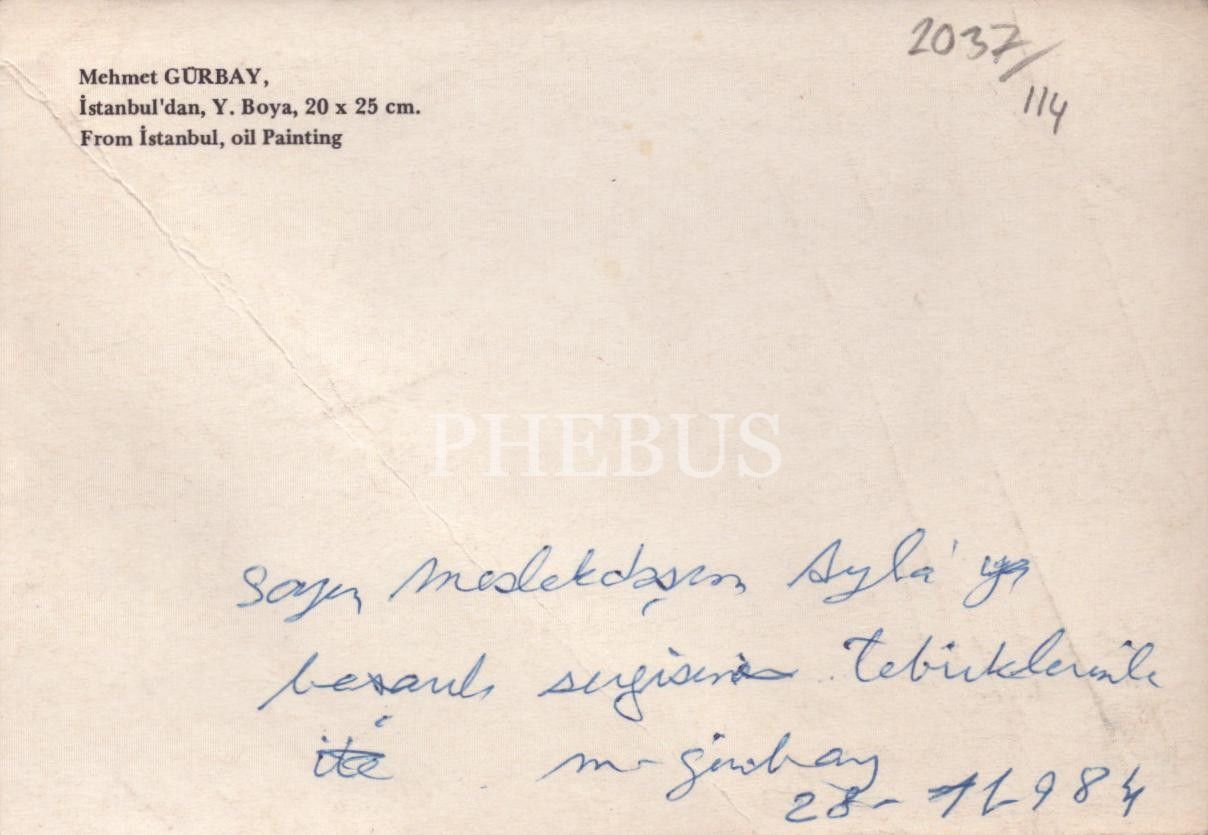 Mehmet GÜRBAY,
İstanbul'dan, Y. Boya, 20 x 25 cm.
From İstanbul, oil Painting
2037/
114
PHEBUS
Sayın Meslekdaşım Ayla'ya
başarılı sergisini Tebriklerimle
ile m-gürbay
28-11-984